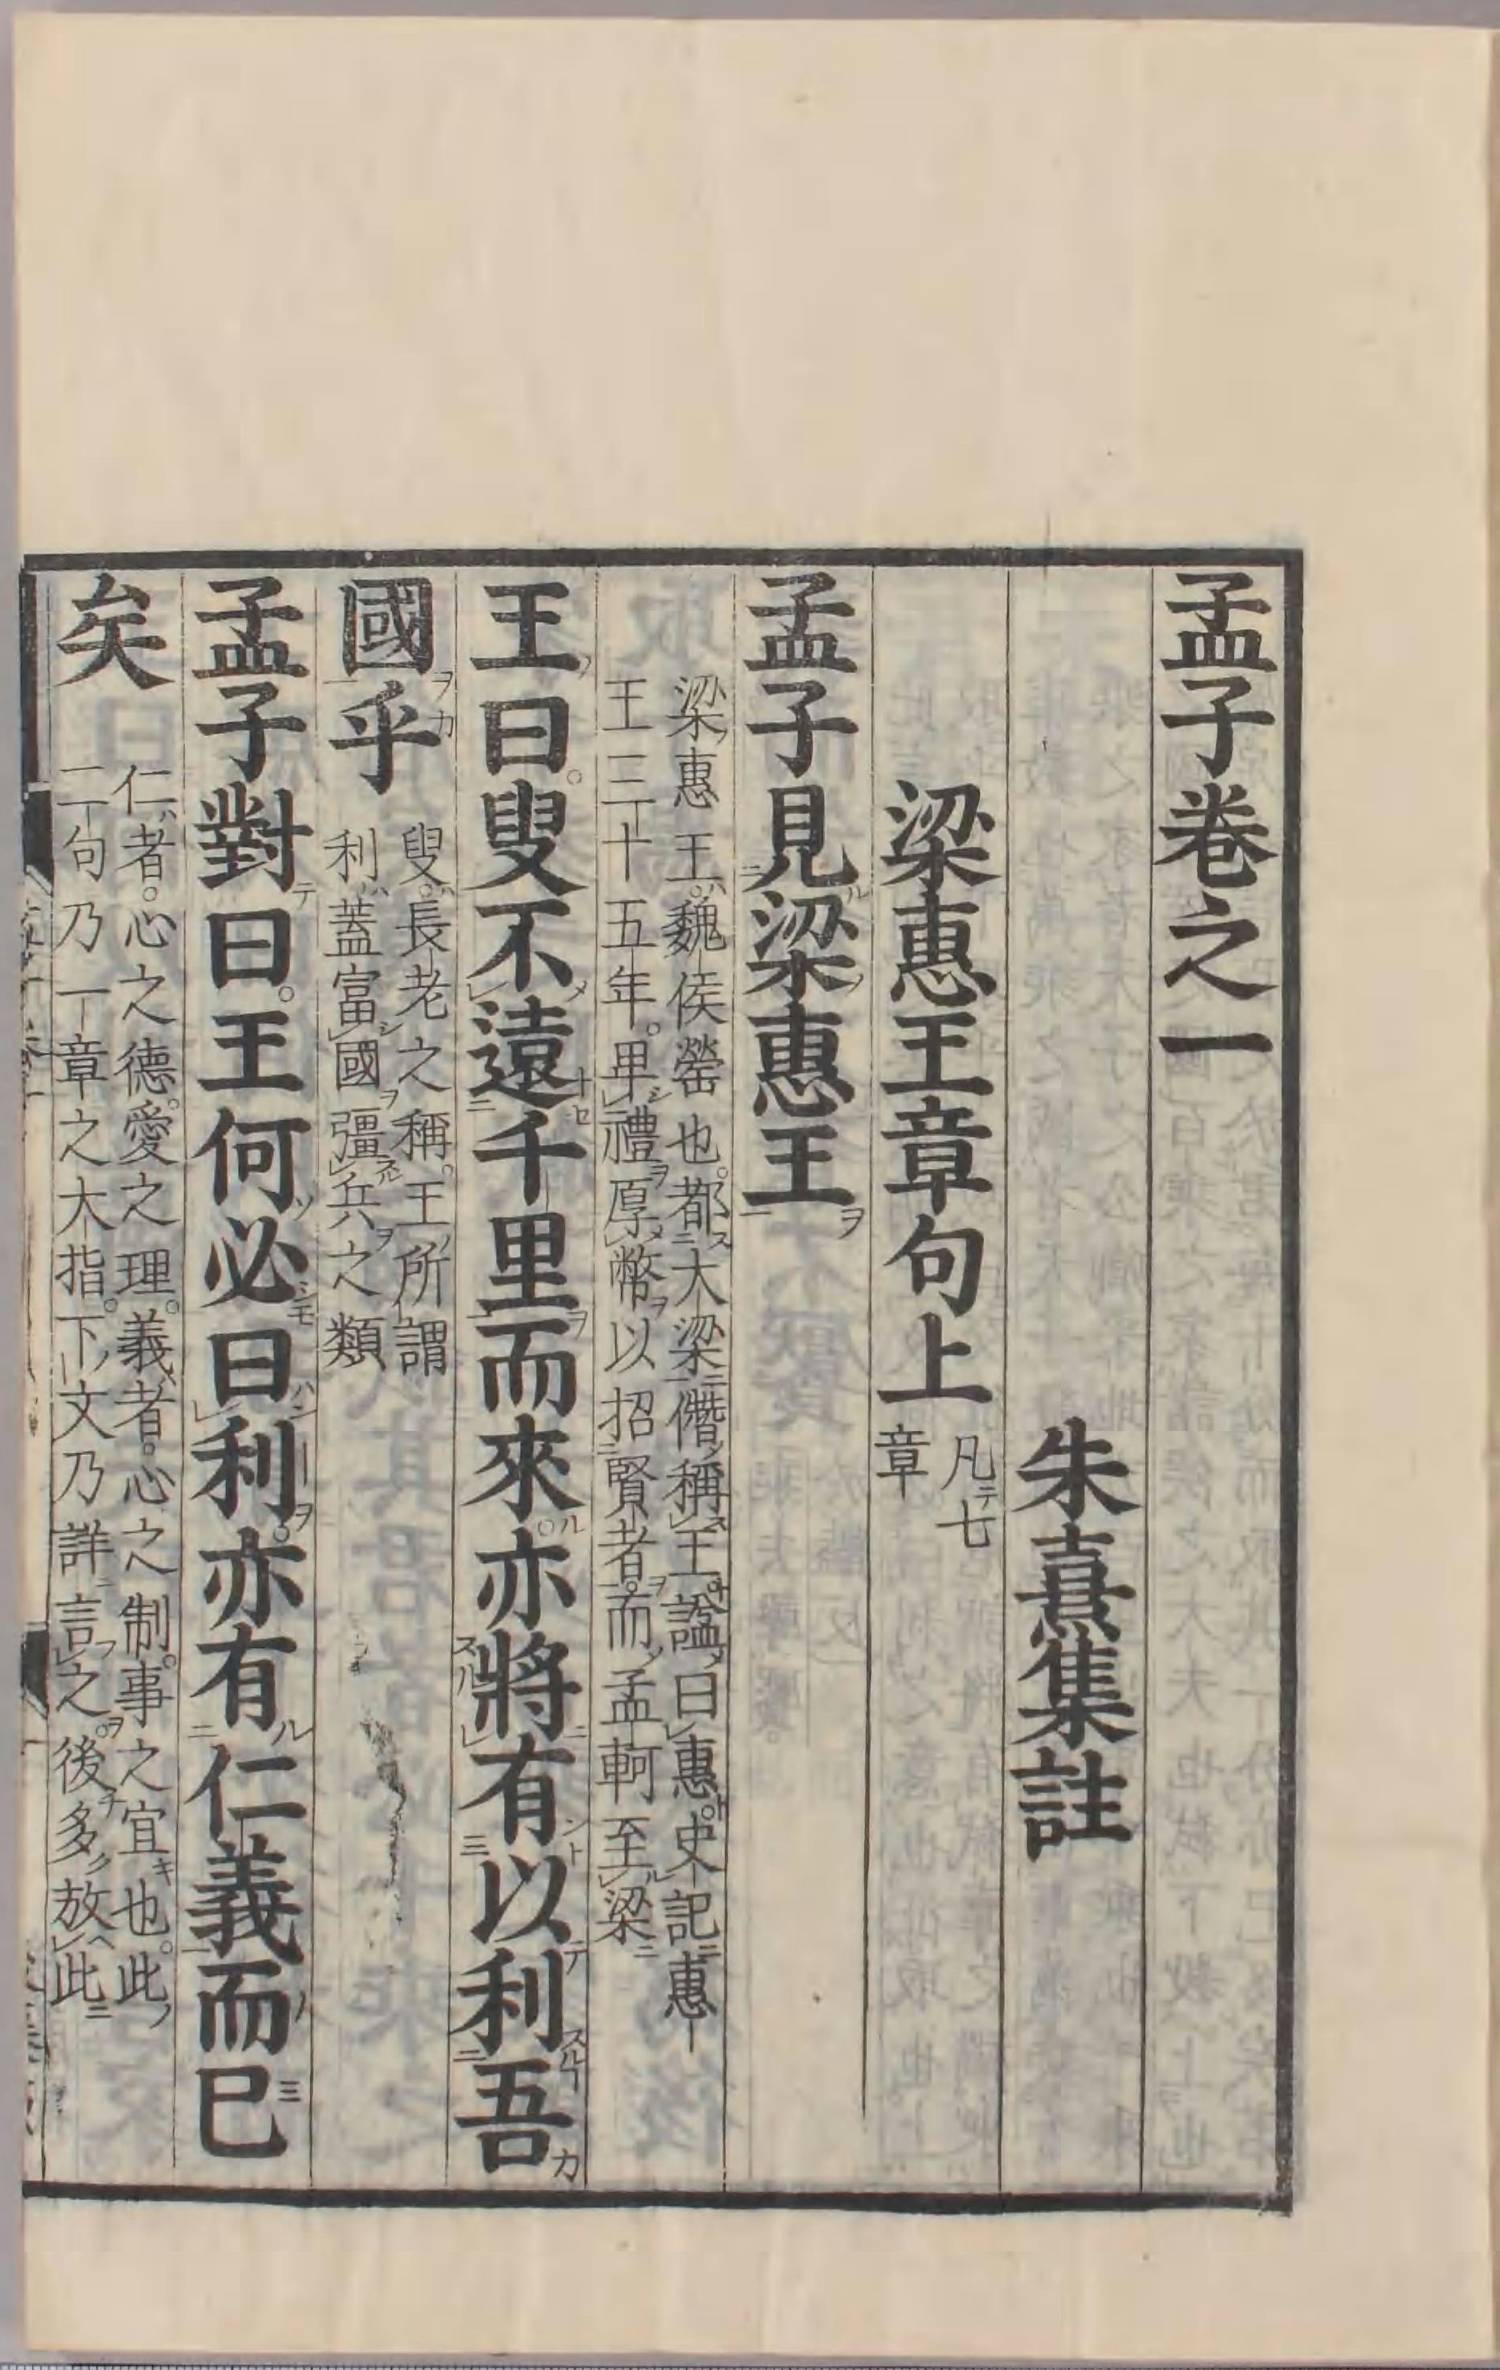 孟子卷之一
朱熹集註
梁惠王章句上
凡七
章
孟子見梁惠王
梁惠王魏侯罃也都大梁僭稱王謚曰惠史記惠
王三十五年卑禮厚幣以招賢者而孟軻至梁
王曰叟不遠千里而來亦將有以利吾
國乎
叟長老之稱王所謂
利蓋富國彊兵之類
孟子對曰王何必曰利亦有仁義而已
矣
仁者心之德愛之理義者心之制事之宜也此
二句乃一章之大指下文乃詳言之後多放此